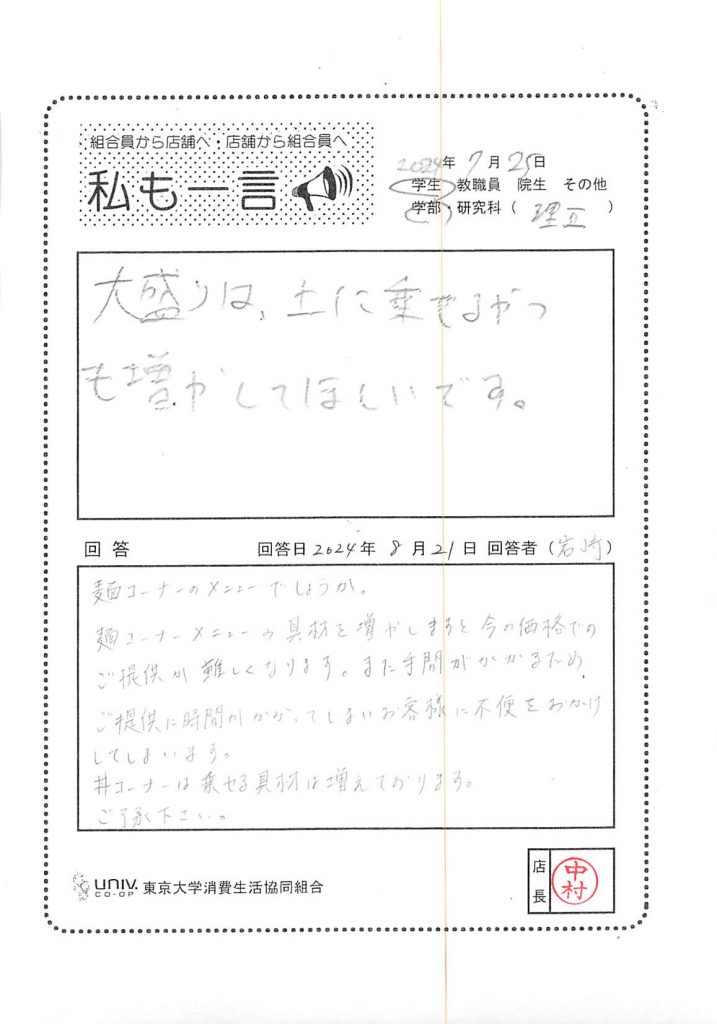 組合員から店舗へ・店舗から組合員へ
私も一言
2024年 7月 25日
学生 教職員 院生 その他
学部・研究科（ 理Ⅱ ）
大盛りは、上に乗せるやつ
も増やしてほしいです。
回答 回答日 2024年 8月 21日 回答者（岩崎）
麺コーナーのメニューでしょうか。
麺コーナーメニューの具材を増やしますと今の価格での
ご提供が難しくなります。また手間がかかるため
ご提供に時間がかかってしまいお客様に不便をおかけ
してしまいます。
丼コーナーは乗せる具材は増えております。
ご了承下さい。
UNIV. CO-OP 東京大学消費生活協同組合
店長 中村